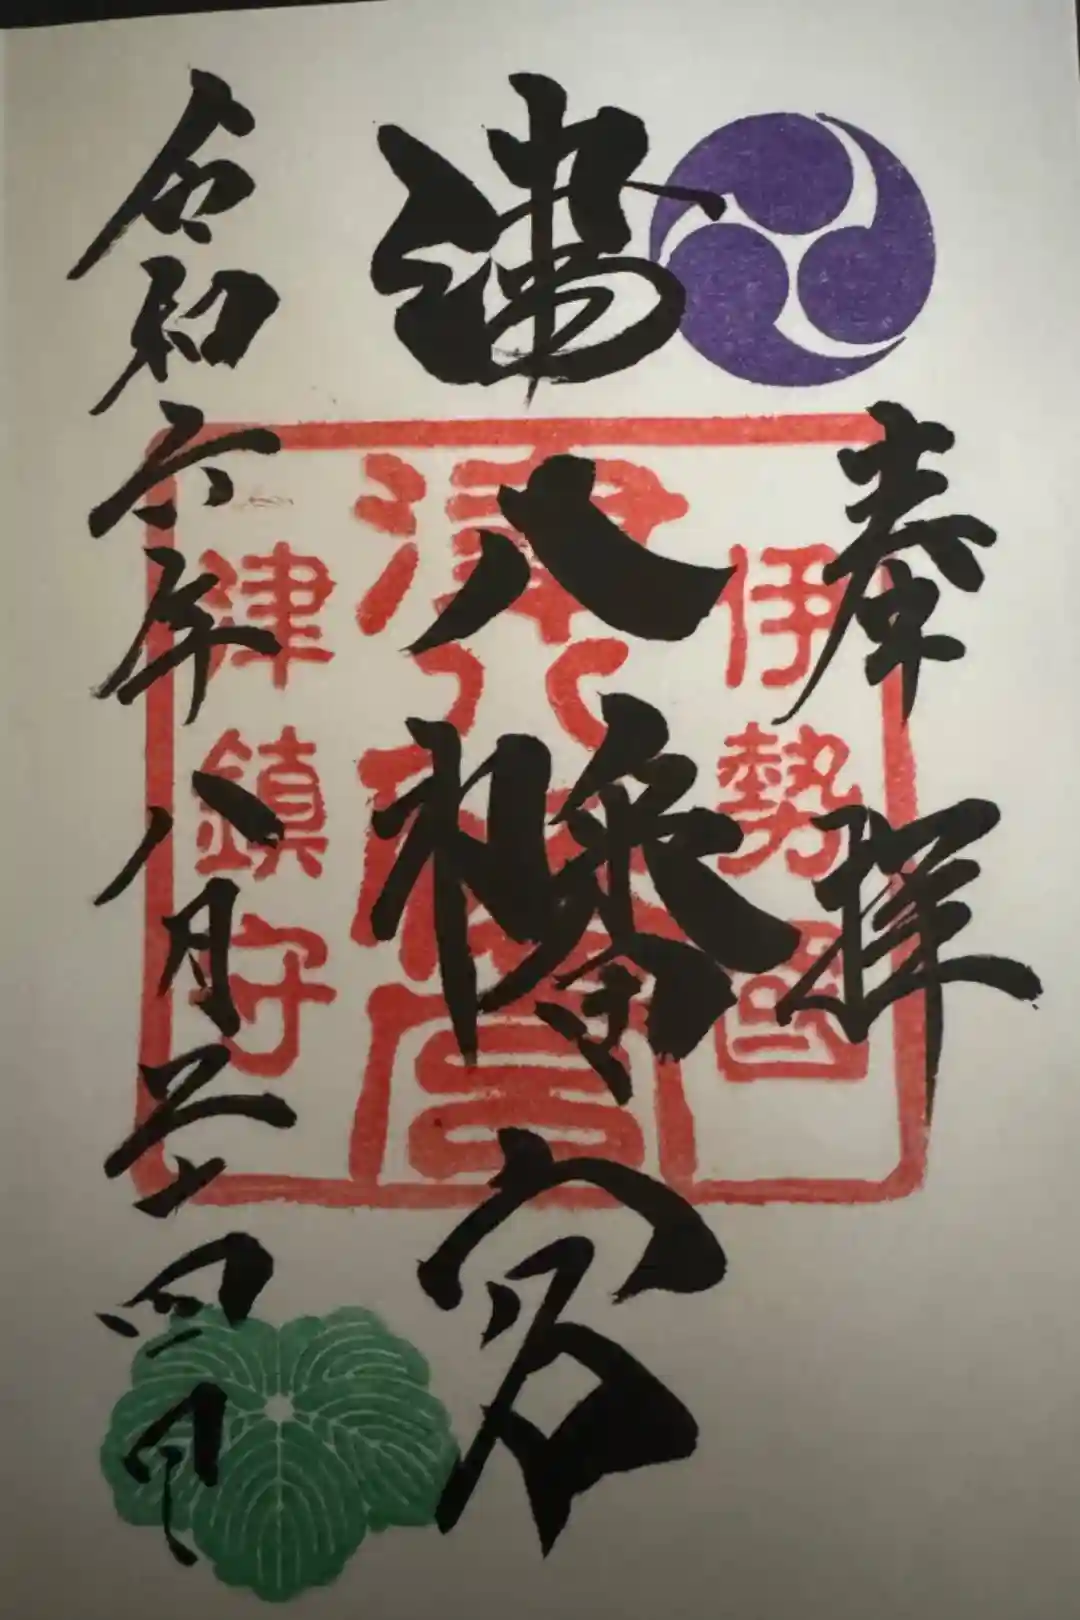 奉拝
津八幡宮
令和六年八月二十四日
伊勢國
津八幡宮
津鎮守